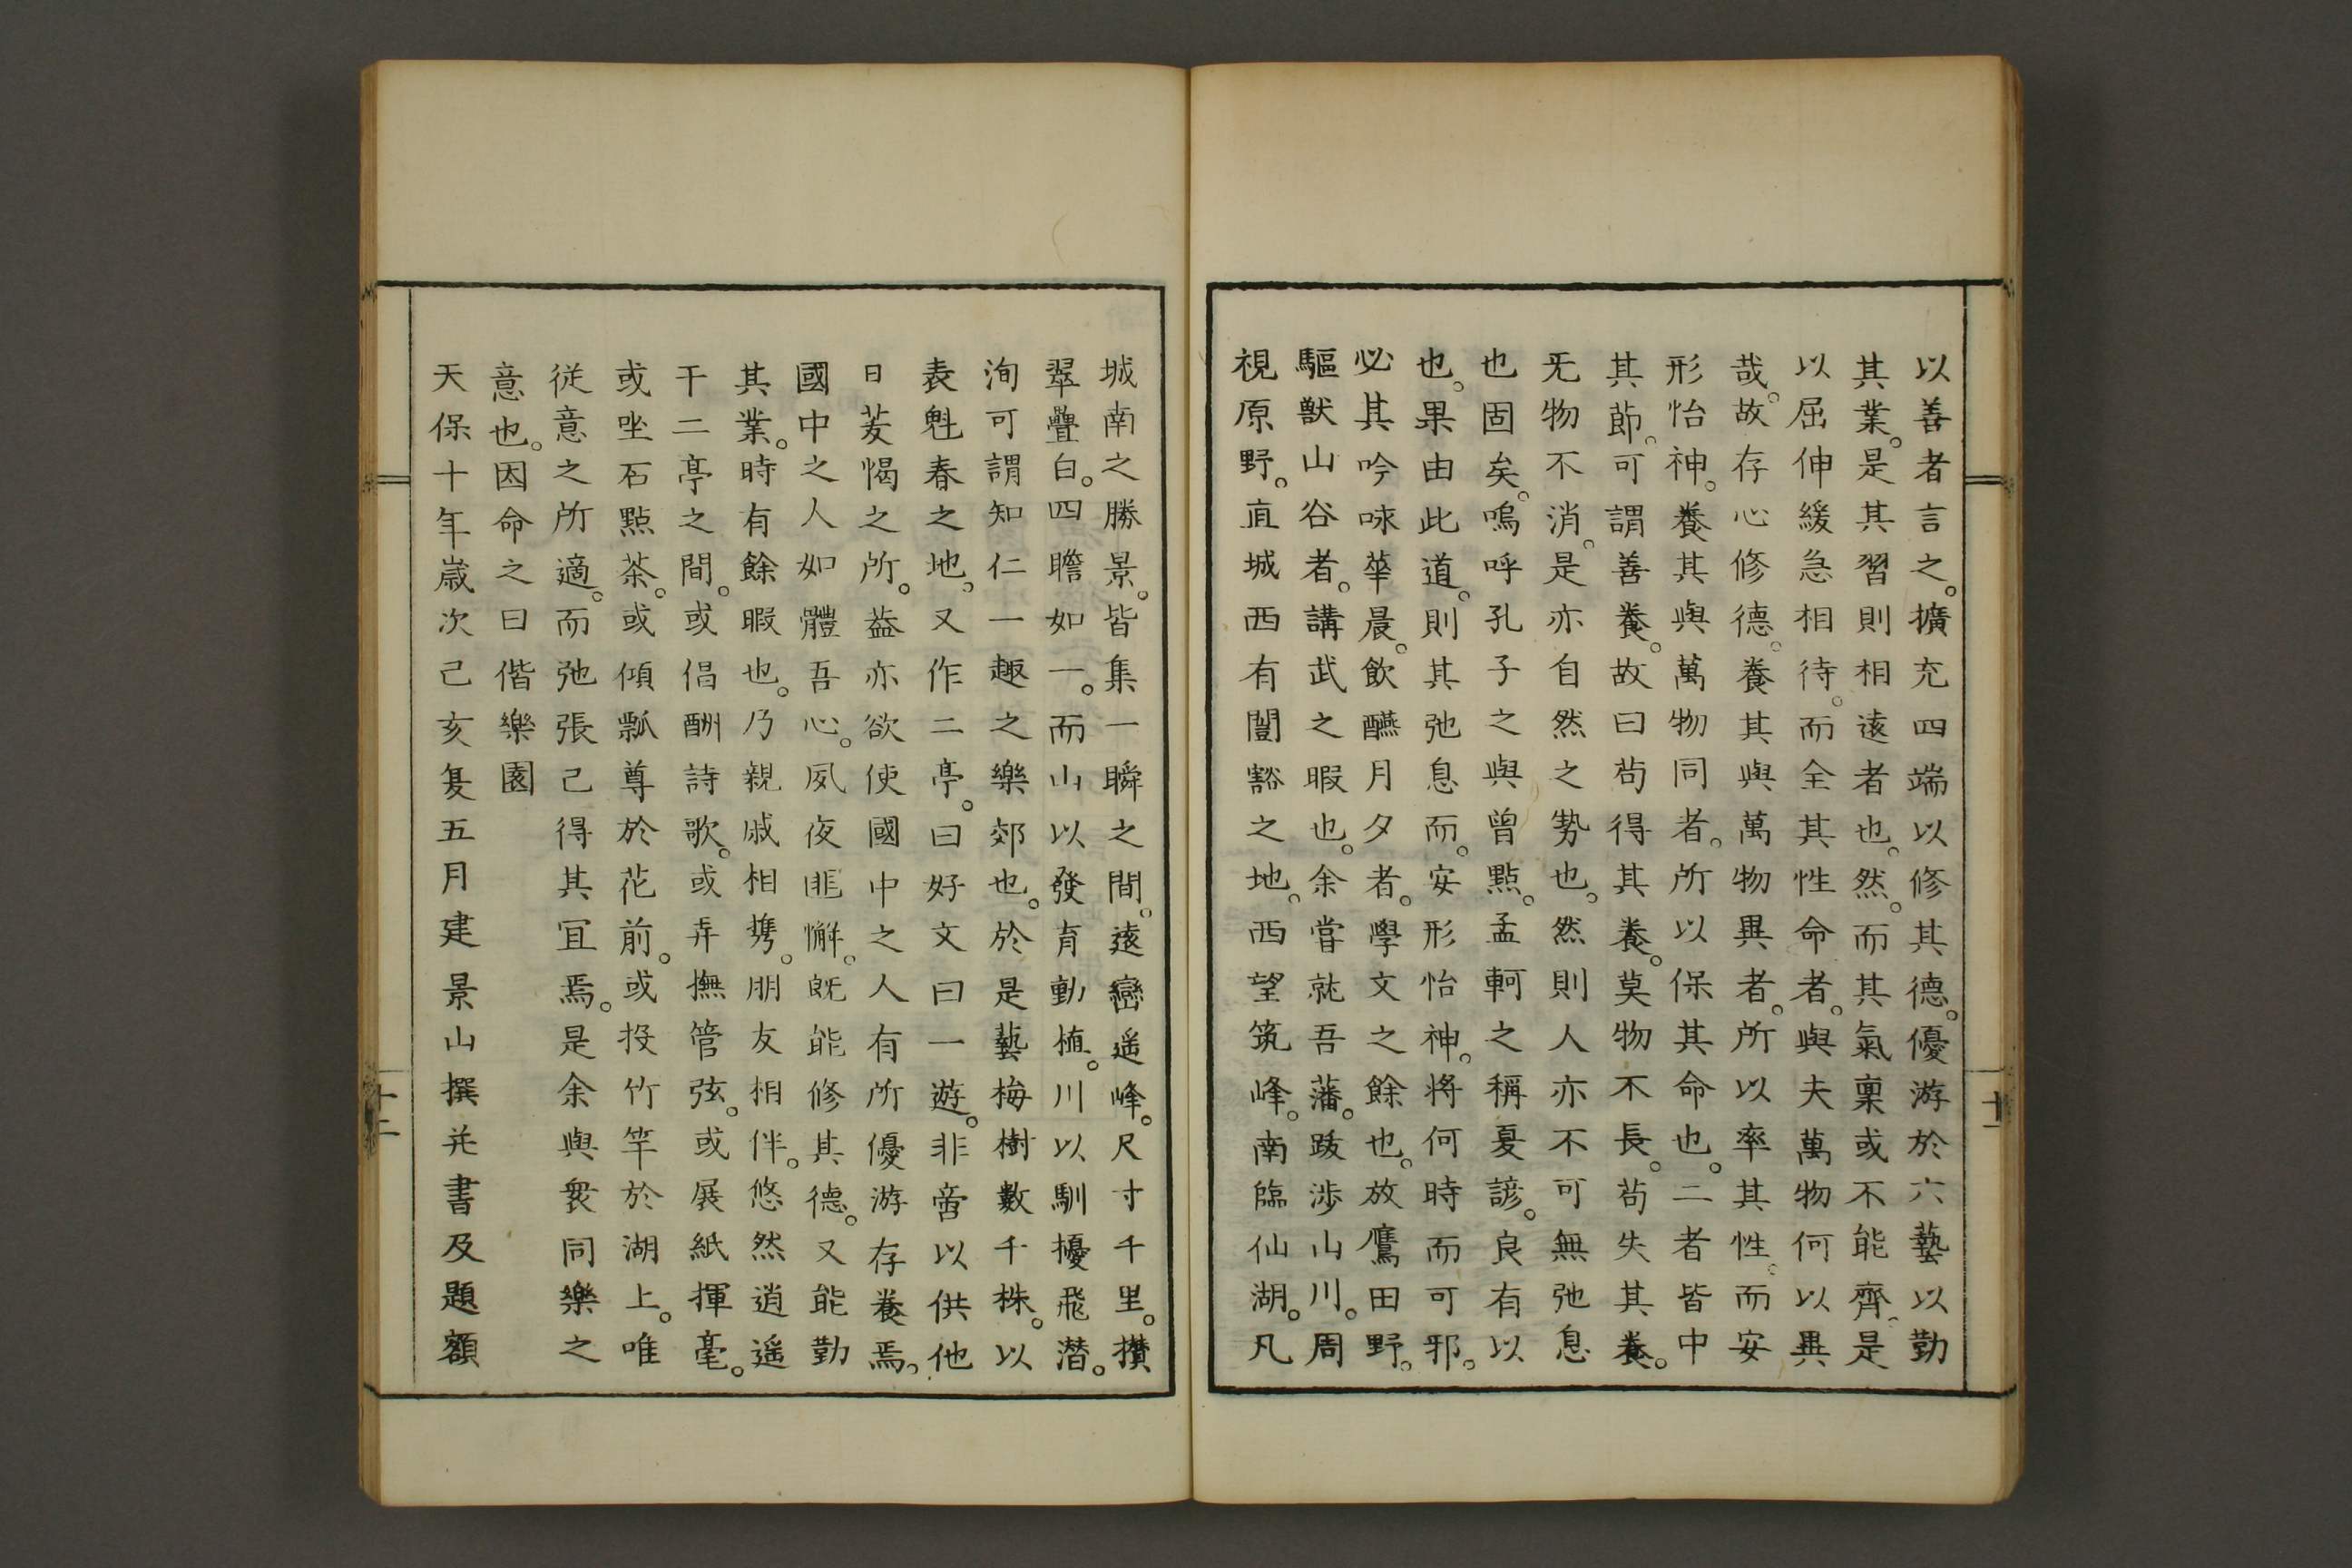 以善者言之。擴充四端以修其德。優游於六藝以勤
其業。是其習則相遠者也。然。而其氣稟或不能齊。是
以屈伸緩急相待。而全其性命者。與夫萬物何以異
哉。故存心修德。養其與萬物異者。所以率其性。而安
形怡神。養其與萬物同者。所以保其命也。二者皆中
其節。可謂善養。故曰苟得其養。莫物不長。苟失其養。
无物不消。是亦自然之勢也。然則人亦不可無弛息
也固矣。嗚呼孔子之與曾點。孟軻之稱夏諺。良有以
也。果由此道。則其弛息而。安形怡神。将何時而可邪。
必其吟咏華晨。飲醼月夕者。學文之餘也。放鷹田野。
驅獸山谷者。講武之暇也。余嘗就吾藩。跋渉山川。周
視原野。直城西有闓豁之地。西望筑峰。南臨仙湖。凡
十一
城南之勝景。皆集一瞬之間。遠巒遥峰。尺寸千里。攅
翠疊白。四瞻如一。而山以發育動植。川以馴擾飛潜。
洵可謂知仁一趣之樂郊也。於是藝梅樹數千株。以
表魁春之地。又作二亭。曰好文曰一遊。非啻以供他
日茇愒之所。葢亦欲使國中之人有所優游存養焉。
國中之人如體吾心。夙夜匪懈。既能修其德。又能勤
其業。時有餘暇也。乃親戚相携。朋友相伴。悠然逍遥
于二亭之間。或倡酬詩歌。或弄撫管弦。或展紙揮毫。
或坐石點茶。或傾瓢尊於花前。或投竹竿於湖上。唯
従意之所適。而弛張己得其冝焉。是余與衆同樂之
意也。因命之曰偕樂園
天保十年歳次己亥夏五月建 景山撰并書及題額
十二